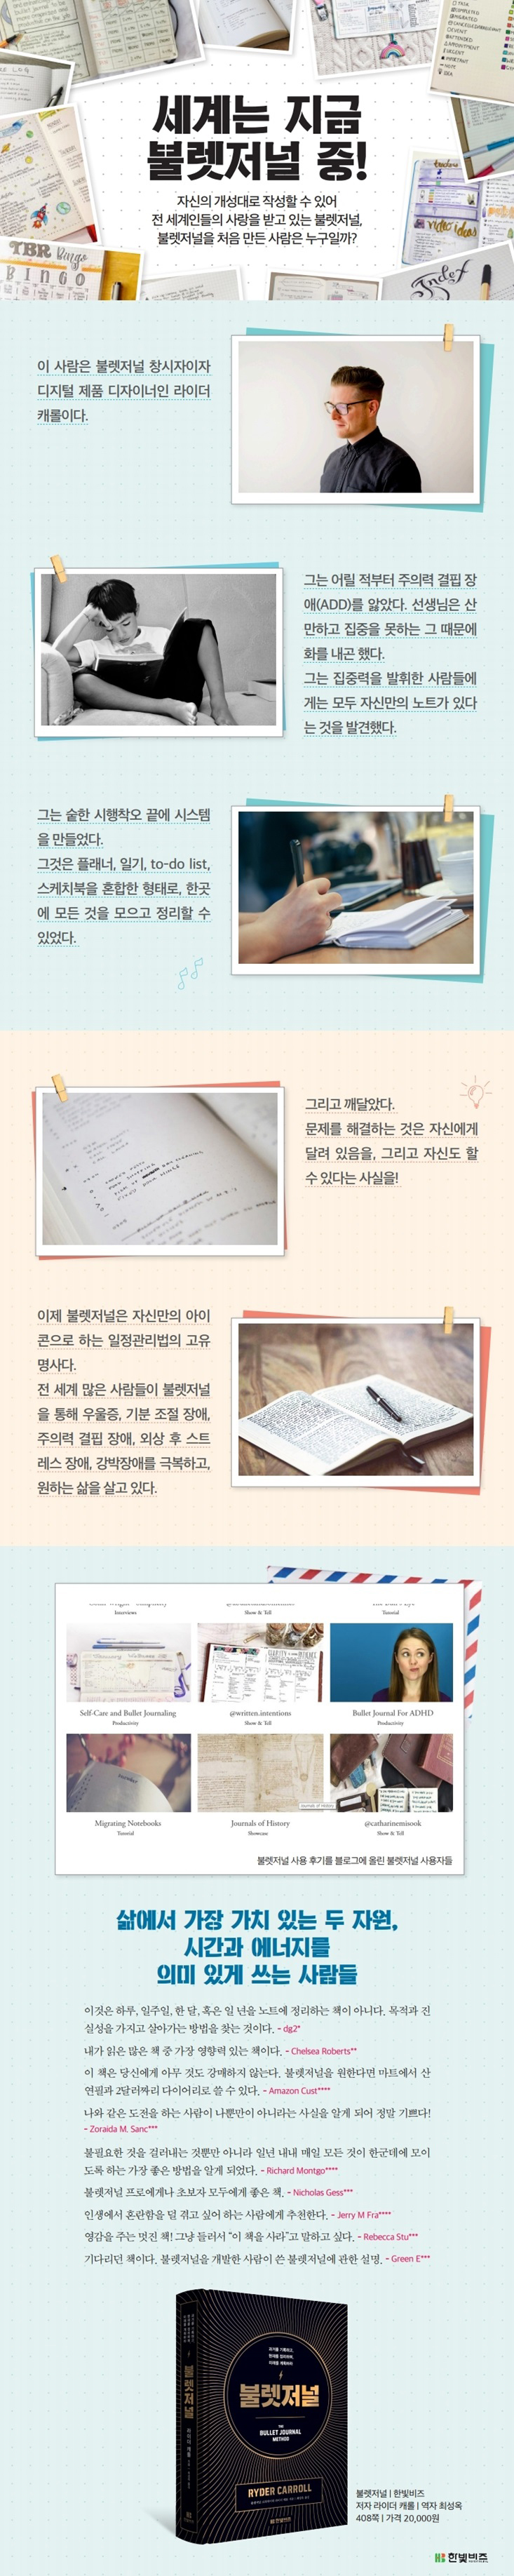 세계는 지금
불렛저널 중!
자신의 개성대로 작성할 수 있어
전 세계인들의 사랑을 받고 있는 불렛저널,
불렛저널을 처음 만든 사람은 누구일까?
TBR Bingo
BINGO
video ideas
Index
이 사람은 불렛저널 창시자이자
디지털 제품 디자이너인 라이더
캐롤이다.
그는 어릴 적부터 주의력 결핍 장
애(ADD)를 앓았다. 선생님은 산
만하고 집중을 못하는 그 때문에
화를 내곤 했다.
그는 집중력을 발휘한 사람들에
게는 모두 자신만의 노트가 있다
는 것을 발견했다.
그는 숱한 시행착오 끝에 시스템
을 만들었다.
그것은 플래너, 일기, to-do list,
스케치북을 혼합한 형태로, 한곳
에 모든 것을 모으고 정리할 수
있었다.
그리고 깨달았다.
문제를 해결하는 것은 자신에게
달려 있음을, 그리고 자신도 할
수 있다는 사실을!
이제 불렛저널은 자신만의 아이
콘으로 하는 일정관리법의 고유
명사다.
전 세계 많은 사람들이 불렛저널
을 통해 우울증, 기분 조절 장애,
주의력 결핍 장애, 외상 후 스트
레스 장애, 강박장애를 극복하고,
원하는 삶을 살고 있다.
Interviews
Show & Tell
Tutorial
Self-Care and Bullet Journaling
@written.intentions
Bullet Journal For ADHD
Productivity
Show & Tell
Productivity
Migrating Notebooks
Journals of History
@catharinemisook
Tutorial
Showcase
Show & Tell
불렛저널 사용 후기를 블로그에 올린 불렛저널 사용자들
삶에서 가장 가치 있는 두 자원,
시간과 에너지를
의미 있게 쓰는 사람들
이것은 하루, 일주일, 한 달, 혹은 일 년을 노트에 정리하는 책이 아니다. 목적과 진
실성을 가지고 살아가는 방법을 찾는 것이다. - dg2*
내가 읽은 많은 책 중 가장 영향력 있는 책이다. - Chelsea Roberts**
이 책은 당신에게 아무 것도 강매하지 않는다. 불렛저널을 원한다면 마트에서 산
연필과 2달러짜리 다이어리로 쓸 수 있다. - Amazon Cust****
나와 같은 도전을 하는 사람이 나뿐만이 아니라는 사실을 알게 되어 정말 기쁘다!
- Zoraida M. Sanc***
불필요한 것을 걸러내는 것뿐만 아니라 일년 내내 매일 모든 것이 한군데에 모이
도록 하는 가장 좋은 방법을 알게 되었다. - Richard Montgo****
불렛저널 프로에게나 초보자 모두에게 좋은 책. - Nicholas Gess***
인생에서 혼란함을 덜 겪고 싶어 하는 사람에게 추천한다. - Jerry M Fra****
영감을 주는 멋진 책! 그냥 들러서 “이 책을 사라”고 말하고 싶다. - Rebecca Stu***
기다리던 책이다. 불렛저널을 개발한 사람이 쓴 불렛저널에 관한 설명. - Green E***
과거를 기록하고,
현재를 정리하며,
미래를 계획하라
불렛저널
THE
BULLET JOURNAL
METHOD
RYDER CARROLL
불렛저널
불렛저널 | 한빛비즈
저자 라이더 캐롤 | 역자 최성옥
408쪽 | 가격 20,000원
한빛비즈